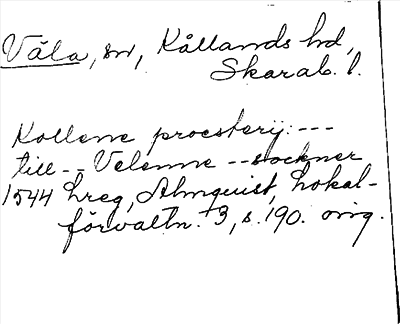 Våla, sn, Kållands hd,
Skarab. l.
Kollene proesterij: ---
till - Velenne -- sockner
1544 hreg, Almquist, Lokal-
förvaltn. 3, s. 190. orig.